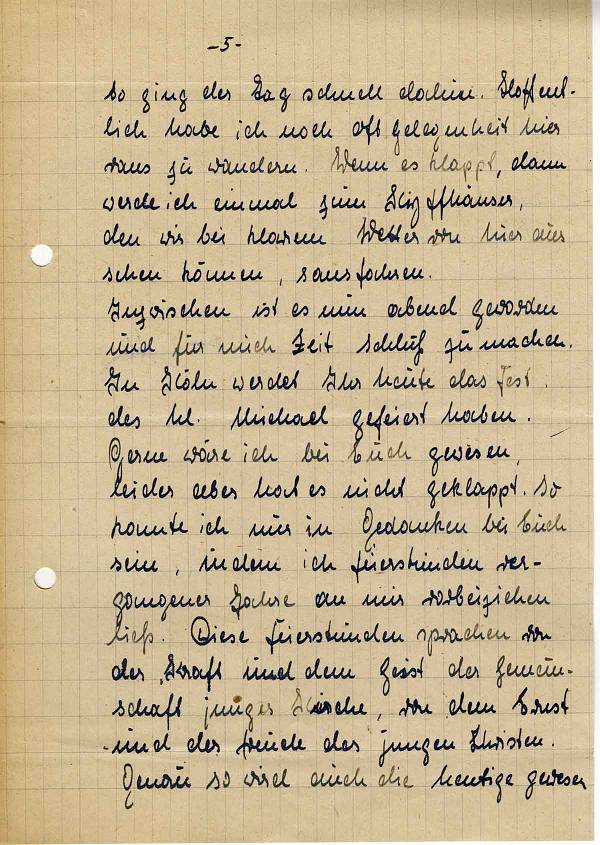 -5-
so ging der Tag schnell dahin. Hoffent-
lich habe ich noch oft gelegenheit hier
raus zu wandern. Wenn es klappt, dann
werde ich einmal zum Kyffhäuser,
den wir bei klarem Wetter von hier aus
sehen können, fahren.
Inzwischen ist es nun abend geworden
und für mich Zeit schluß zu machen.
In Köln werdet Ihr heute das Fest
des hl. Michael gefeiert haben.
Gerne wäre ich bei Euch gewesen,
leider aber hat es nicht geklappt. So
konnte ich nur in Gedanken bei Euch
sein, indem ich feierstunden ver-
gangener Jahre an mir vorbeiziehen
ließ. Diese feierstunden sprachen von
der Kraft und dem Geist der Gemein-
schaft junger Kirche, von dem Ernst
und der freude des jungen Christen.
Genau so wird auch die heutige gewesen